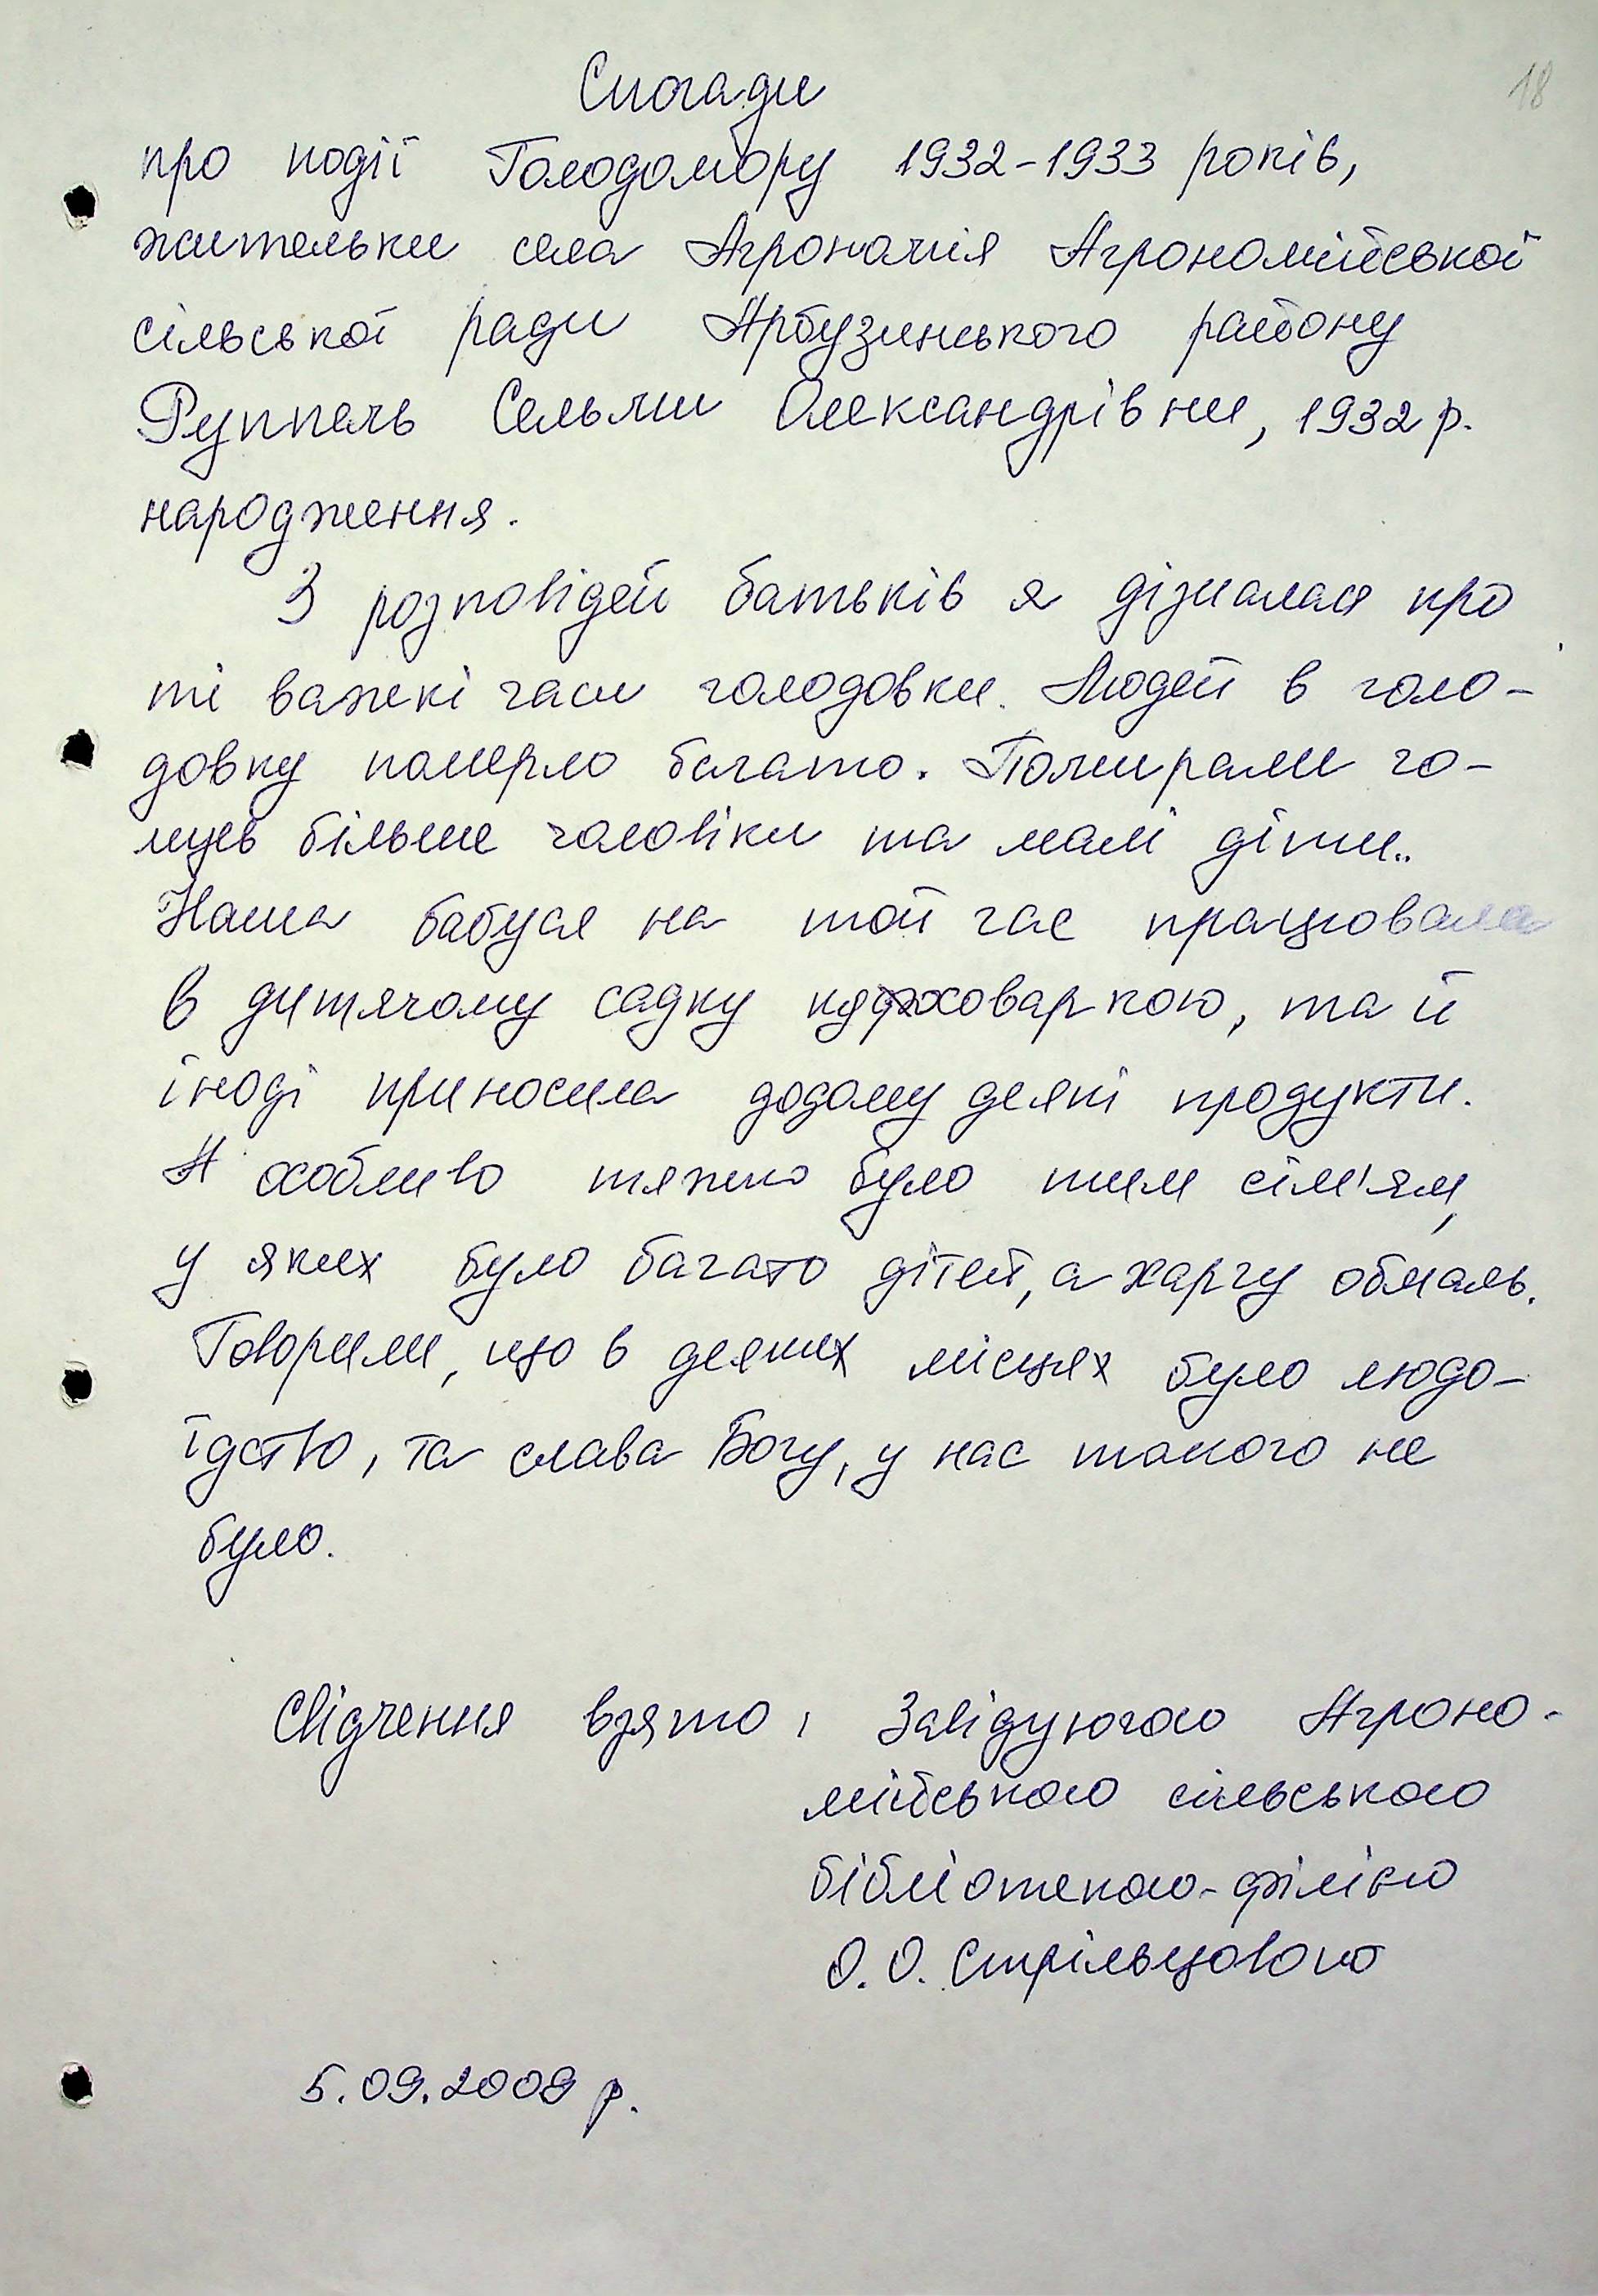 18
Спогади
про події Голодомору 1932-1933 років,
жительки села Агрономія Агрономійської
сільської ради Арбузинського району
Руппель Сельми Олександрівни, 1932 р.
народження.
З розповідей батьків я дізналася про
ті важкі часи голодовки. Людей в голо-
довку померло багато. Помирали го-
лцев більше чоловіки та малі діти..
Наша бабуся на той час працювала
в дитячому садку куховаркою, та й
іноді приносила додому деякі продукти.
А особливо тяжко було тим сім'ям,
у яких було багато дітей, а харчу обмаль.
Говорили, що в деяких місцях було людо-
їдство, та слава Богу, у нас такого не
було.
Свідчення взято: Завідуючою Агроно-
мійською сільською
бібліотекою-філією
О. О. Стрільцовою
5.09.2008 р.